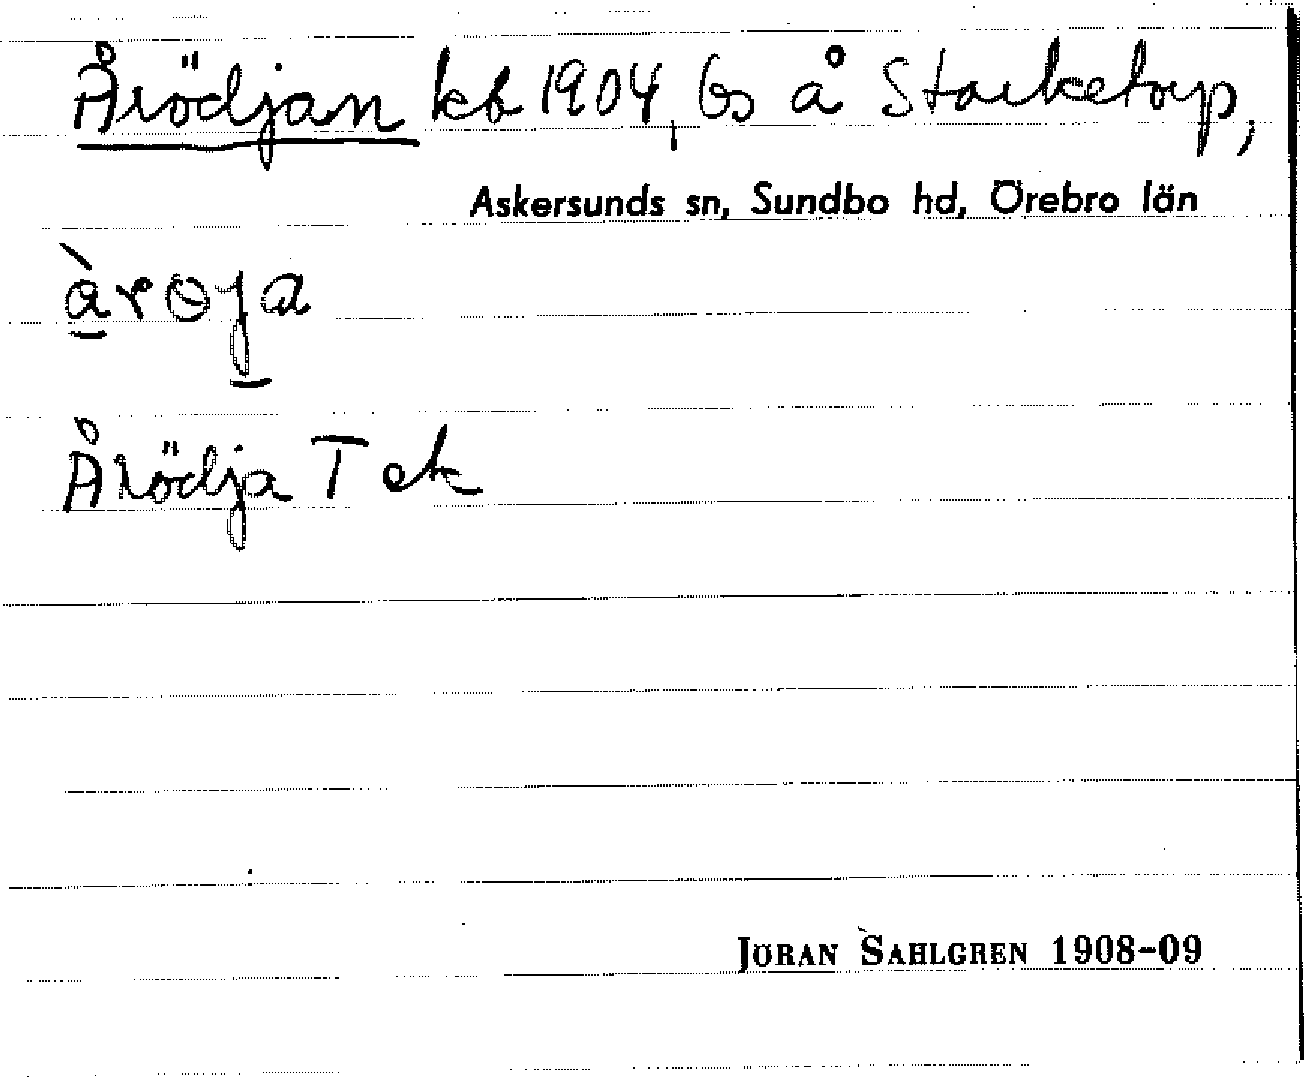 Årödjan kb 1904, bs å Starketorp,
Askersunds sn, Sundbo hd, Örebro län
àrɵja
Årödja T ek
JÖRAN SAHLGREN 1908-09